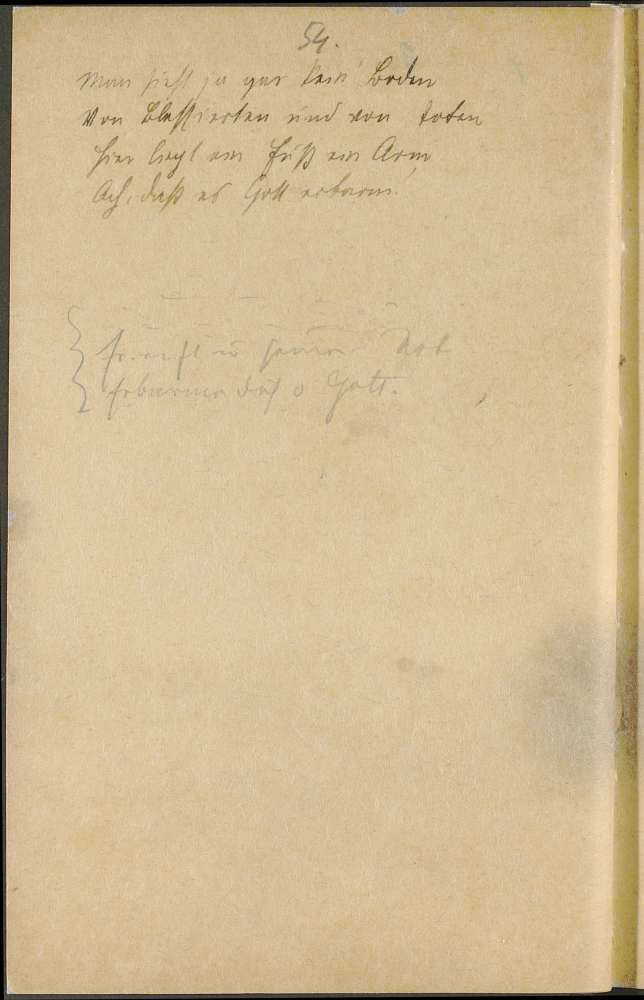 54.
Man sieht ja gar kein' Boden
Von Blessierten und von toten
hier liegt ein Fuß ein Arm
Ach, daß es Gott erbarm!
in
Not
Erbarme dich o Gott.